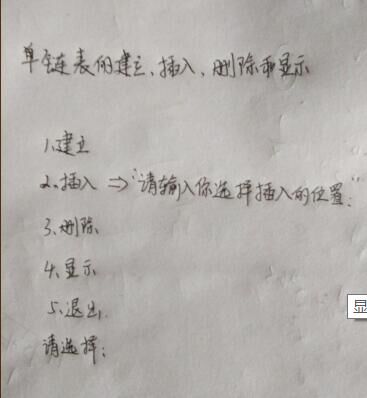 单链表的建立、插入、删除和显示
1、建立
2、插入 => "请输入你选择插入的位置："
3、删除
4、显示
5、退出
请选择：
显